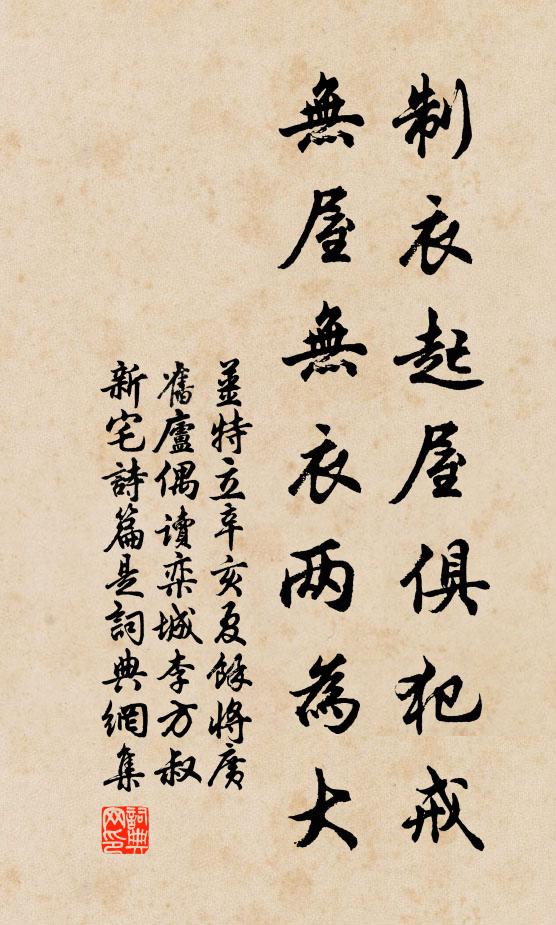 制衣起屋俱犯戒
無屋無衣兩為大
姜特立辛亥夏餘將廣
舊廬偶讀栾城李方叔
新宅詩篇是詞典網集
詞典网印